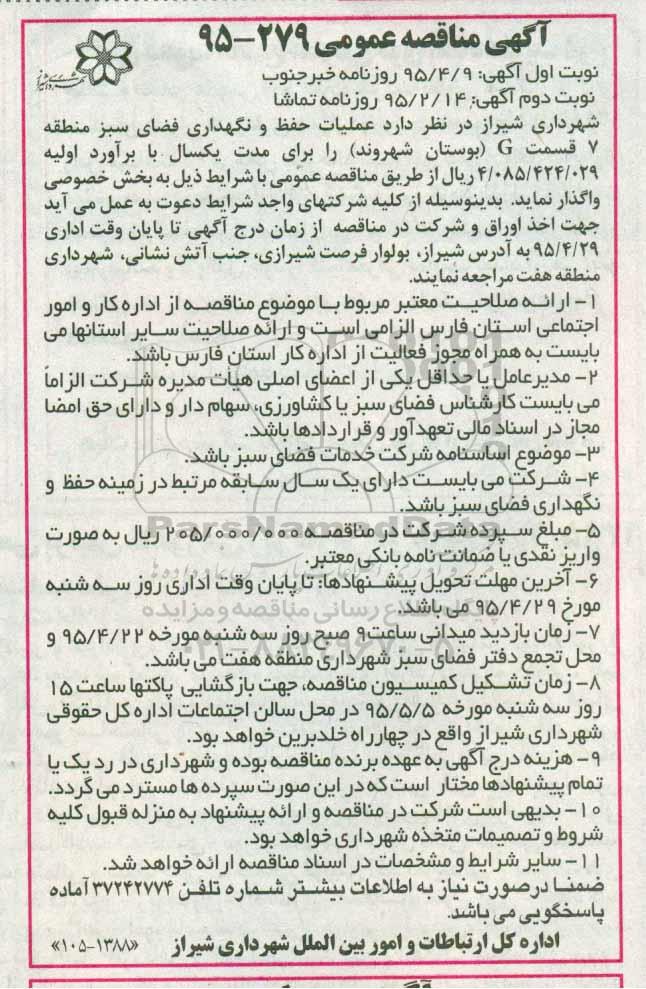 آگهی مناقصه عمومی ۲۷۹-۹۵
نوبت اول آگهی: ۹۵/۴/۹ روزنامه خبرجنوب
نوبت دوم آگهی: ۹۵/۲/۱۴ روزنامه تماشا
شهرداری شیراز در نظر دارد عملیات حفظ و نگهداری فضای سبز منطقه
۷ قسمت G (بوستان شهروند) را برای مدت یکسال با برآورد اولیه
۴/۰۸۵/۴۲۴/۰۲۹ ریال از طریق مناقصه عمومی با شرایط ذیل به بخش خصوصی
واگذار نماید. بدینوسیله از کلیه شرکتهای واجد شرایط دعوت به عمل می آید
جهت اخذ اوراق و شرکت در مناقصه از زمان درج آگهی تا پایان وقت اداری
۹۵/۴/۲۹ به آدرس شیراز، بولوار فرصت شیرازی، جنب آتش نشانی، شهرداری
منطقه هفت مراجعه نمایند.
۱- ارائه صلاحیت معتبر مربوط با موضوع مناقصه از اداره کار و امور
اجتماعی استان فارس الزامی است و ارائه صلاحیت سایر استانها می
بایست به همراه مجوز فعالیت از اداره کار استان فارس باشد.
۲- مدیرعامل یا حداقل یکی از اعضای اصلی هیأت مدیره شرکت الزاماً
می بایست کارشناس فضای سبز یا کشاورزی، سهام دار و دارای حق امضا
مجاز در اسناد مالی تعهدآور و قراردادها باشد.
۳- موضوع اساسنامه شرکت خدمات فضای سبز باشد.
۴- شرکت می بایست دارای یک سال سابقه مرتبط در زمینه حفظ و
نگهداری فضای سبز باشد.
۵- مبلغ سپرده شرکت در مناقصه ۲۰۵/۰۰۰/۰۰۰ ریال به صورت
واریز نقدی یا ضمانت نامه بانکی معتبر.
۶- آخرین مهلت تحویل پیشنهادها: تا پایان وقت اداری روز سه شنبه
مورخ ۹۵/۴/۲۹ می باشد.
۷- زمان بازدید میدانی ساعت ۹ صبح روز سه شنبه مورخه ۹۵/۴/۲۲ و
محل تجمع دفتر فضای سبز شهرداری منطقه هفت می باشد.
۸- زمان تشکیل کمیسیون مناقصه، جهت بازگشایی پاکتها ساعت ۱۵
روز سه شنبه مورخه ۹۵/۵/۵ در محل سالن اجتماعات اداره کل حقوقی
شهرداری شیراز واقع در چهارراه خلدبرین خواهد بود.
۹- هزینه درج آگهی به عهده برنده مناقصه بوده و شهرداری در رد یک یا
تمام پیشنهادها مختار است که در این صورت سپرده ها مسترد می گردد.
۱۰- بدیهی است شرکت در مناقصه و ارائه پیشنهاد به منزله قبول کلیه
شروط و تصمیمات متخذه شهرداری خواهد بود.
۱۱- سایر شرایط و مشخصات در اسناد مناقصه ارائه خواهد شد.
ضمنا درصورت نیاز به اطلاعات بیشتر شماره تلفن ۳۷۲۴۲۷۷۴ آماده
پاسخگویی می باشد.
اداره کل ارتباطات و امور بین الملل شهرداری شیراز «۱۰۵-۱۳۸۸»
ParsNamadData
پایگاه اطلاع رسانی مناقصه و مزایده